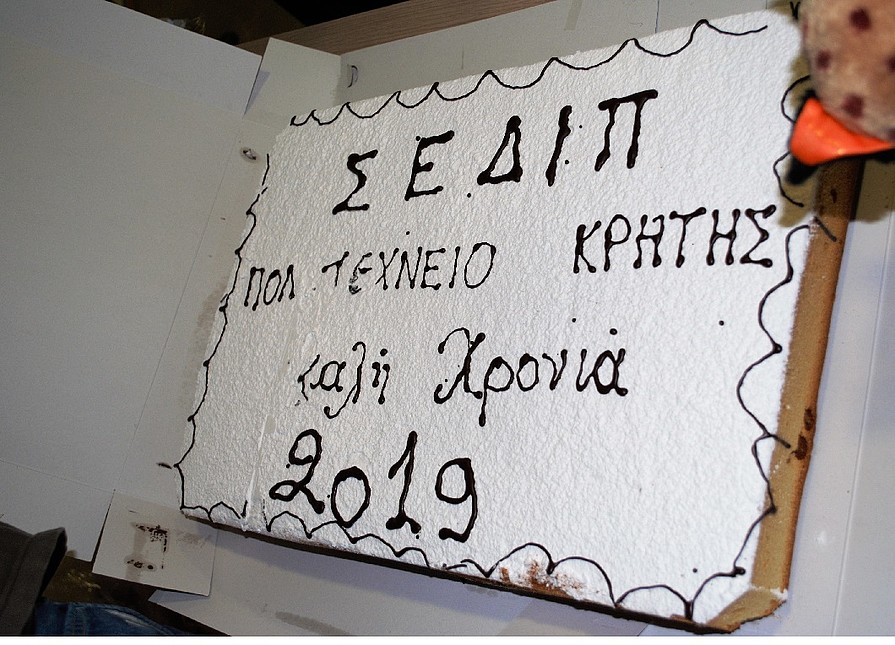 ΣΕΔΙΠ
ΠΟΛ ΤΕΧΝΕΙΟ ΚΡΗΤΗΣ
καλή Χρονιά
2019